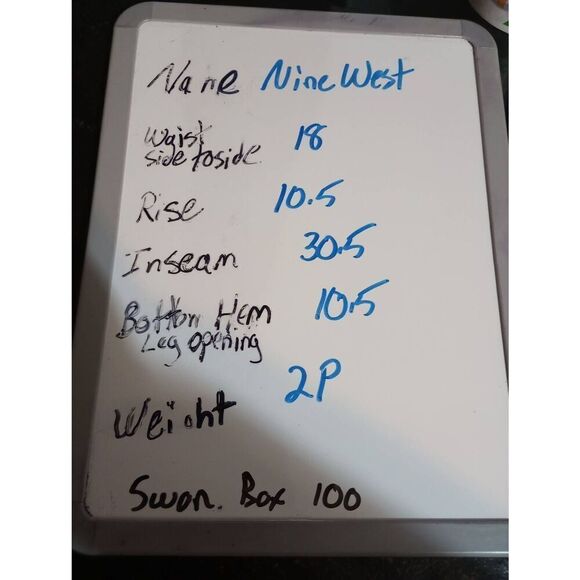 Name Nine West
Waist 18
side to side
Rise 10.5
Inseam 30.5
Bottom Hem 10.5
Leg opening
2P
Weight
Swon. Box 100